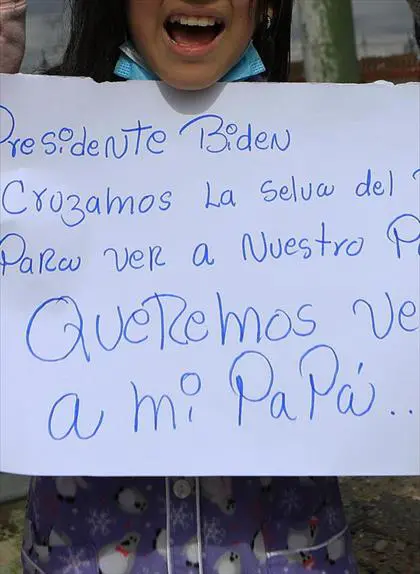 Presidente Biden
Cruzamos La Selva del
Para ver a Nuestro
Queremos ve
a mi Papá...